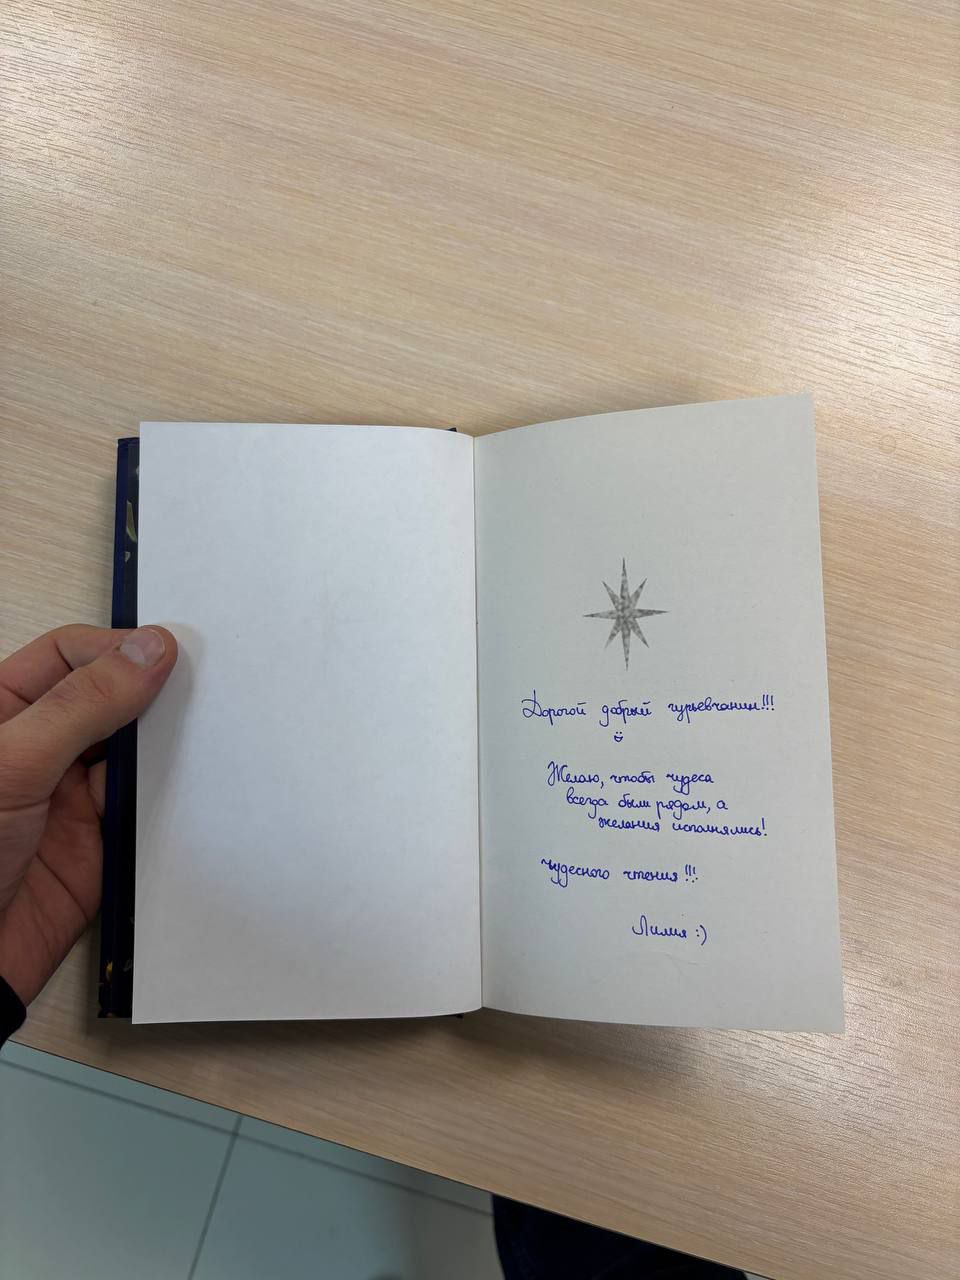 Дорогой добрый гурьевчанин!!!
Желаю, чтобы чудеса
всегда были рядом, а
желания исполнялись!
Чудесного чтения!!!
Лилия :)